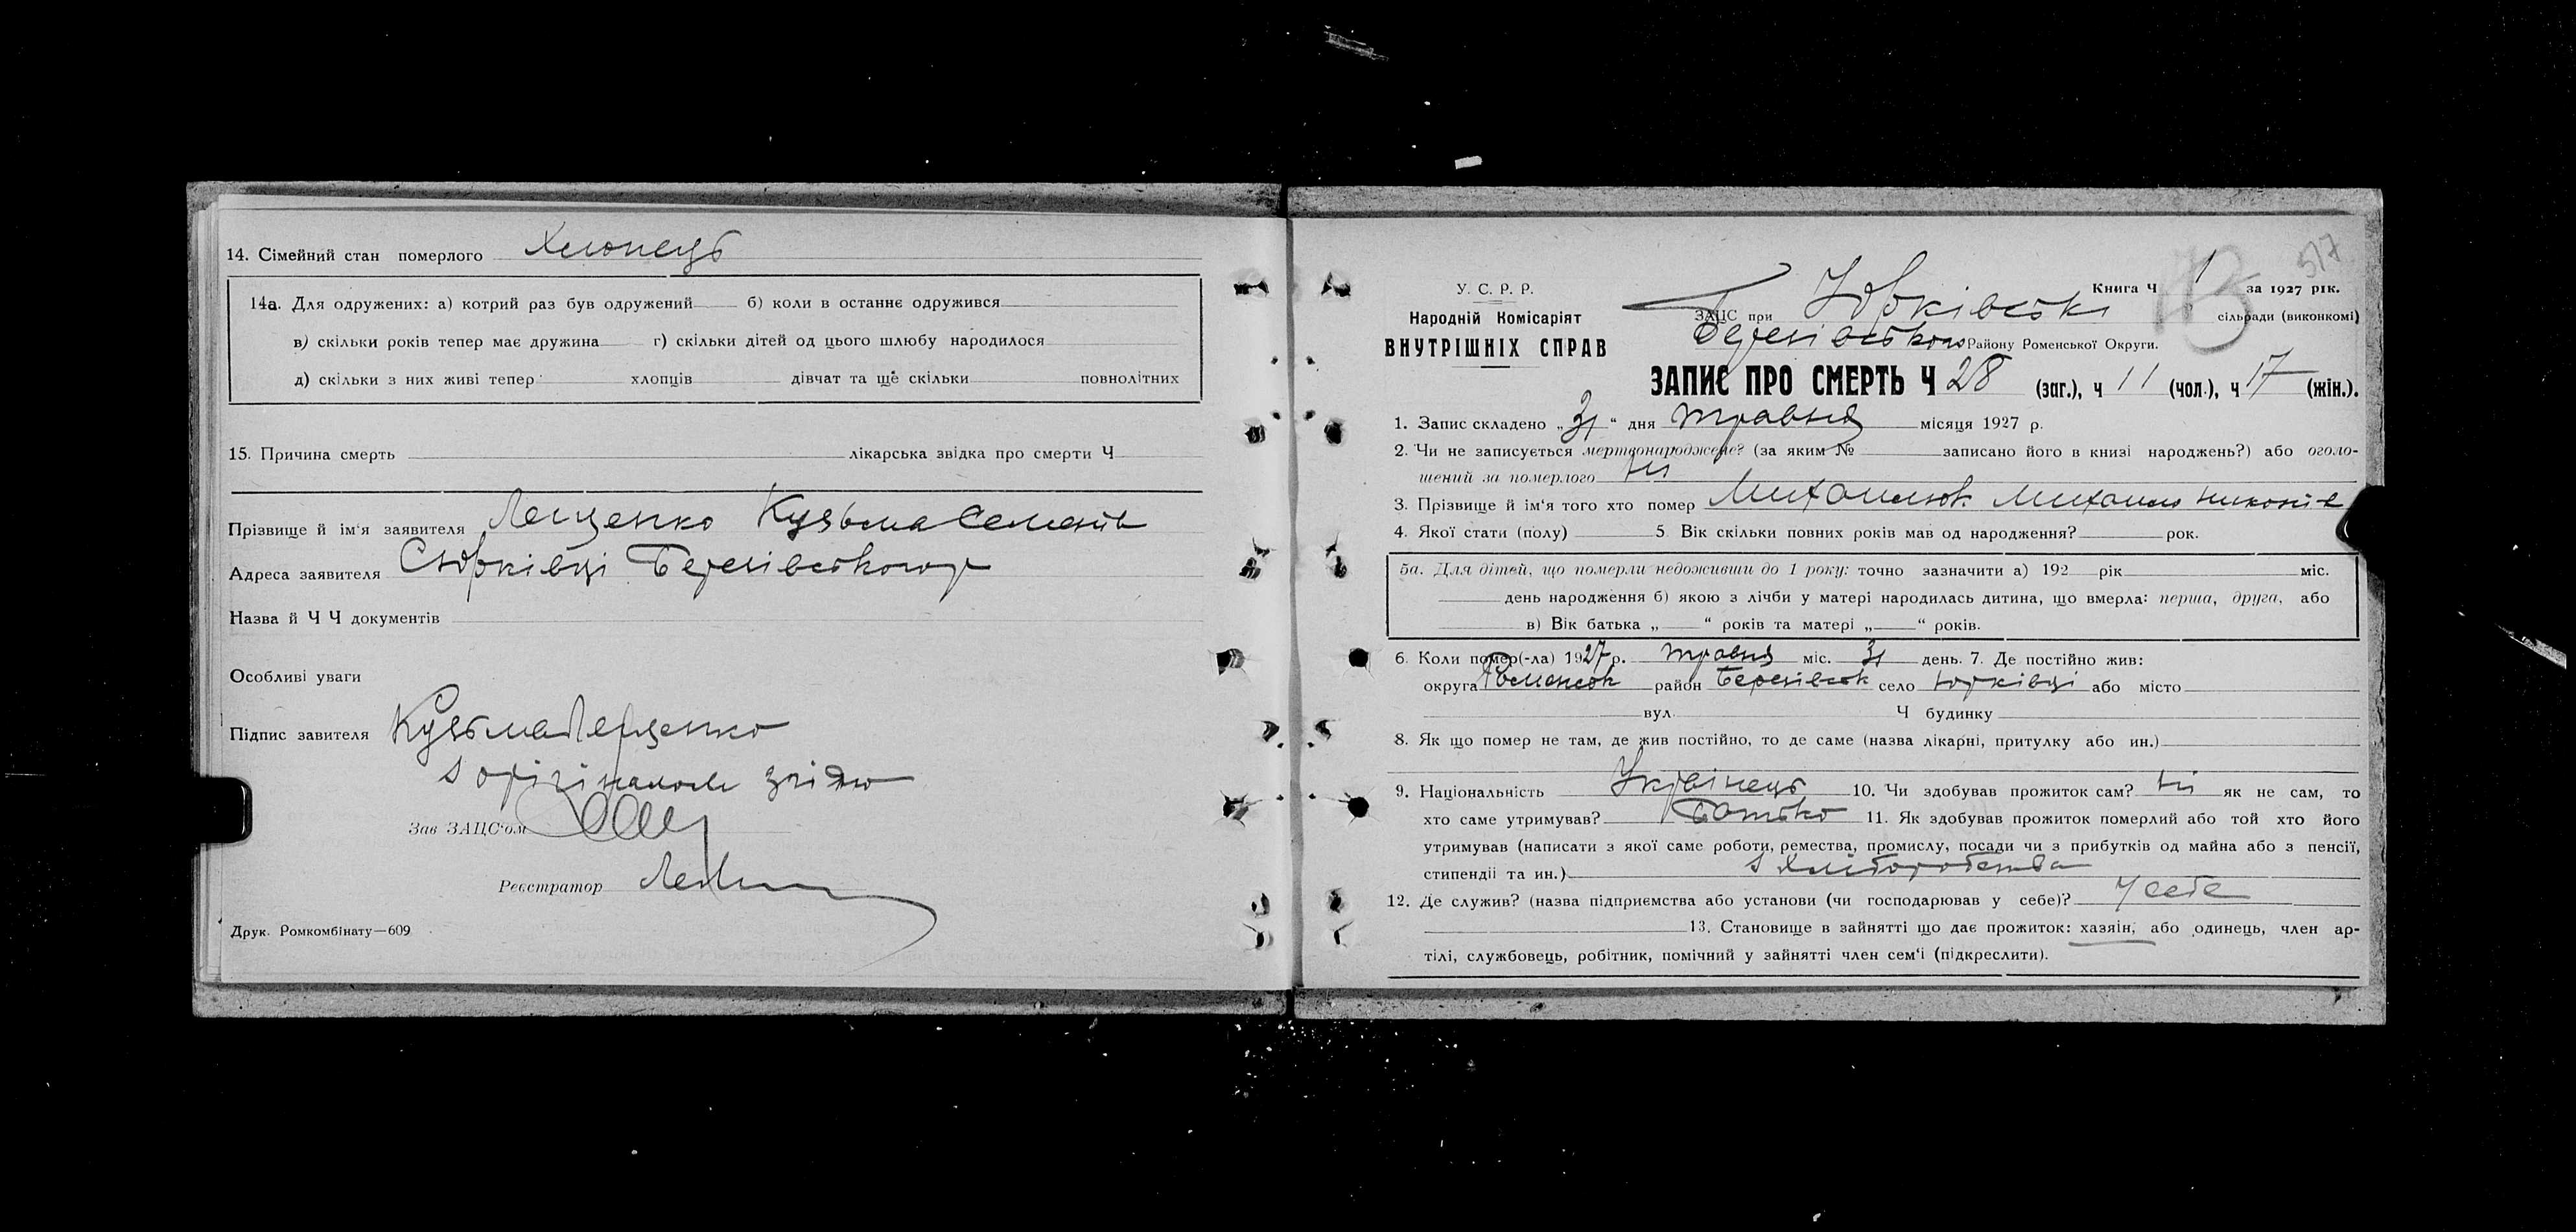 14. Сімейний стан померлого Хлопець
14а. Для одружених: а) котрий раз був одружений б) коли в останнє одружився
в) скільки років тепер має дружина г) скільки дітей од цього шлюбу народилося
д) скільки з них живі тепер хлопців дівчат та ще скільки повнолітних
15. Причина смерть лікарська звідка про смерти Ч
Прізвище й ім'я заявителя Лещенко Кузьма Семенів
Адреса заявителя С Юрківці Березівського р
Назва й Ч Ч документів
Особливі уваги
Підпис завителя Кузьма Лещенко
З орігіналом згідно
Зав ЗАЦС'ом
Реєстратор
Друк. Ромкомбінату—609
517
У. С. Р. Р.
Народній Комісаріят
ВНУТРІШНІХ СПРАВ
Книга Ч 1 за 1927 рік.
ЗАЦС при Юрківські сільради (виконкомі)
Березівського Району Роменської Округи.
ЗАПИС ПРО СМЕРТЬ Ч 28 (заг.), ч 11 (чол.), ч 17 (жін.).
1. Запис складено „31“ дня травня місяця 1927 р.
2. Чи не записується мертвонароджене? (за яким № записано його в книзі народжень?) або оголо-
шений за померлого ні
3. Прізвище й ім'я того хто помер Михайлюк Михайло Никонів
4. Якої стати (полу) 5. Вік скільки повних років мав од народження? рок.
5а. Для дітей, що померли недоживши до 1 року: точно зазначити а) 192 рік міс.
день народження б) якою з лічби у матері народилась дитина, що вмерла: перша, друга, або
в) Вік батька „ “ років та матері „ “ років.
6. Коли помер(-ла) 1927 р. травня міс. 31 день. 7. Де постійно жив:
округа Роменськ район Березівськ село Юрківці або місто
вул. Ч будинку
8. Як що помер не там, де жив постійно, то де саме (назва лікарні, притулку або ин.)
9. Національність Українець 10. Чи здобував прожиток сам? ні як не сам, то
хто саме утримував? Батько 11. Як здобував прожиток померлий або той хто його
утримував (написати з якої саме роботи, ремества, промислу, посади чи з прибутків од майна або з пенсії,
стипендії та ин.) з хліборобства
12. Де служив? (назва підприємства або установи (чи господарював у себе)? У себе
13. Становище в зайнятті що дає прожиток: хазяїн, або одинець, член ар-
тілі, службовець, робітник, помічний у зайнятті член сем'ї (підкреслити).